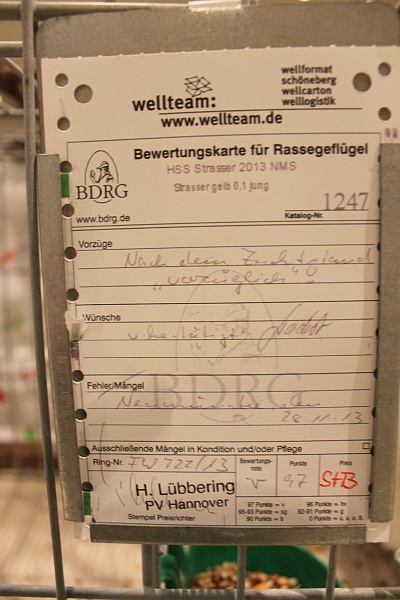 wellteam:
wellformat
schöneberg
wellcarton
welllogistik
www.wellteam.de
BDRG
Bewertungskarte für Rassegeflügel
HSS Strasser 2013 NMS
Strasser gelb 0,1 jung
www.bdrg.de
Katalog-Nr. 1247
Vorzüge
Nach dem Zuchtstand
"vorzüglich"!
Wünsche
BDRG
Fehler/Mängel
28-11-13
Ausschließende Mängel in Kondition und/oder Pflege
Ring-Nr.
H. Lübbering
PV Hannover
Stempel Preisrichter
Bewertungs-
note
v
Punkte
97
Preis
StB
97 Punkte = v
96 Punkte = hv
93-95 Punkte = sg
92-91 Punkte = g
90 Punkte = b